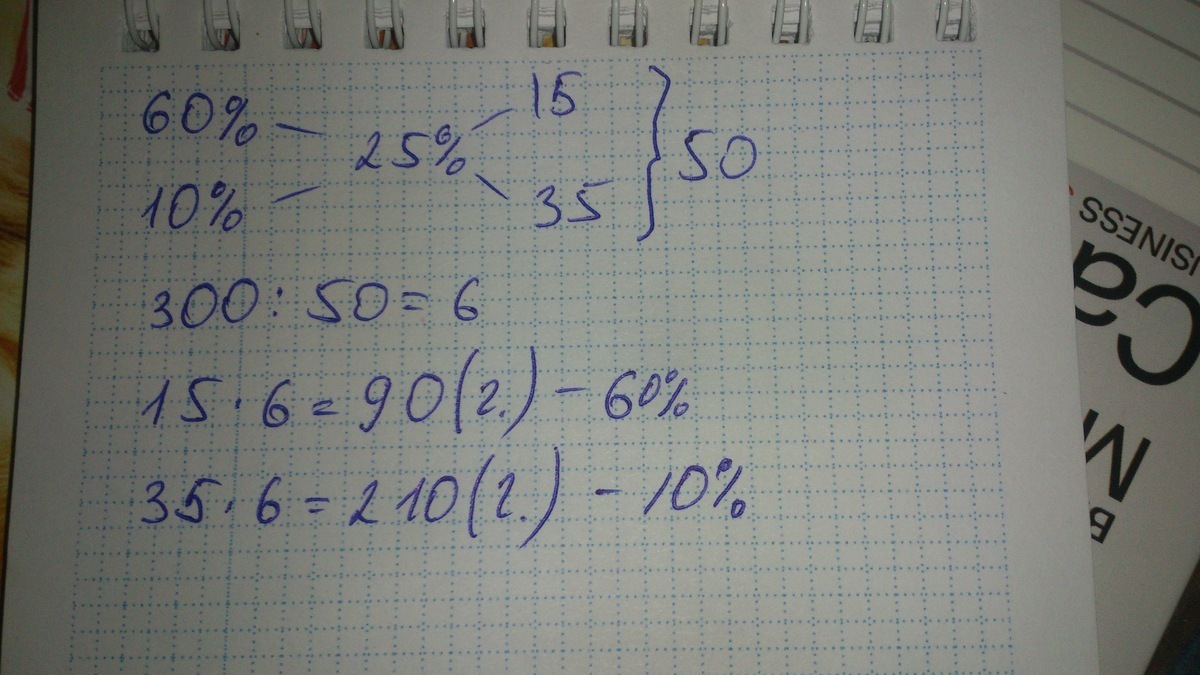 60% 15
25% 50
10% 35
300 : 50 = 6
15 · 6 = 90 (г.) – 60%
35 · 6 = 210 (г.) – 10%
USINESS
Ca